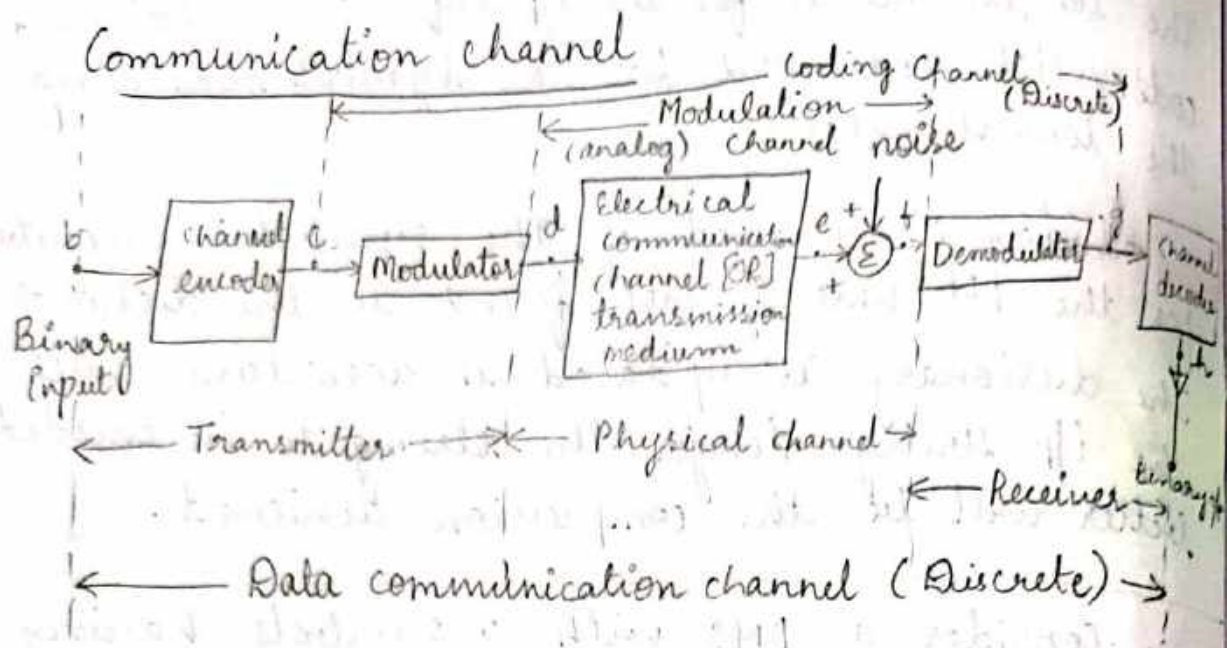 Communication channel
Coding Channel
(Discrete)
Modulation
(analog) channel noise
b
channel
encoder
c
Modulator
d
Electrical
communication
channel [OR]
transmission
medium
e
+
+
Σ
f
Demodulator
g
Channel
decoder
h
Binary
Input
Transmitter
Physical channel
Receiver
Data communication channel (Discrete)